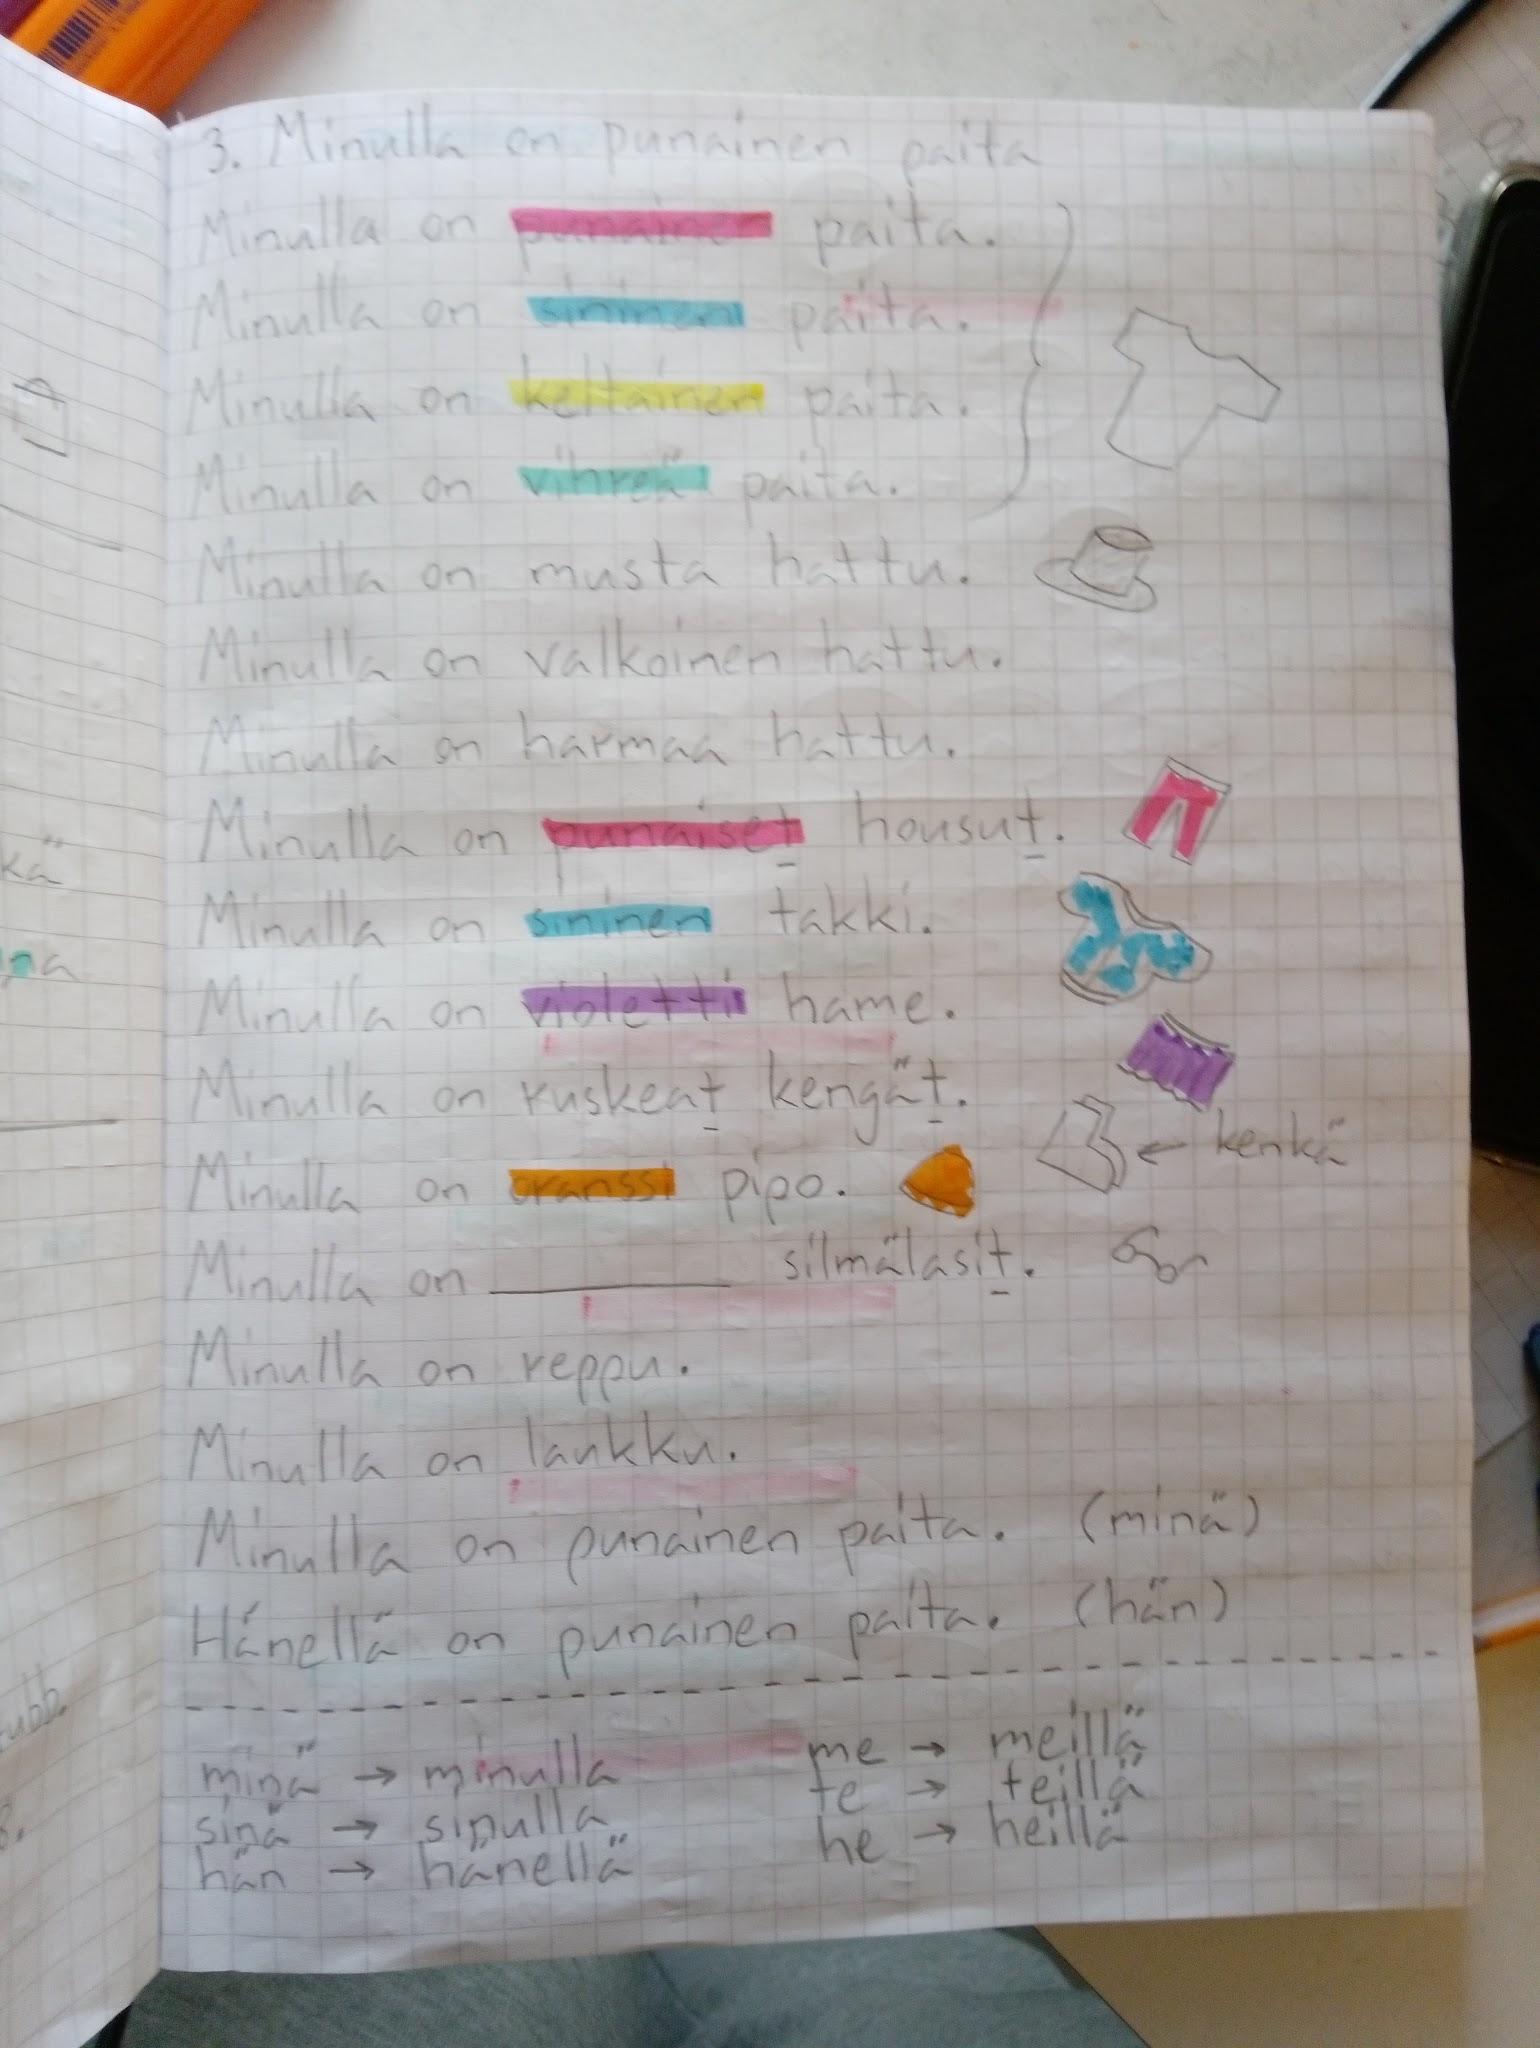 3. Minulla on punainen paita
Minulla on punainen paita.
Minulla on sininen paita.
Minulla on keltainen paita.
Minulla on vihreä paita.
Minulla on musta hattu.
Minulla on valkoinen hattu.
Minulla on harmaa hattu.
Minulla on punaiset housut.
Minulla on sininen takki.
Minulla on violetti hame.
Minulla on ruskeat kengät.
← kenkä
Minulla on oranssi pipo.
Minulla on __________ silmälasit.
Minulla on reppu.
Minulla on laukku.
Minulla on punainen paita. (minä)
Hänellä on punainen paita. (hän)
minä → minulla
sinä → sinulla
hän → hänellä
me → meillä
te → teillä
he → heillä